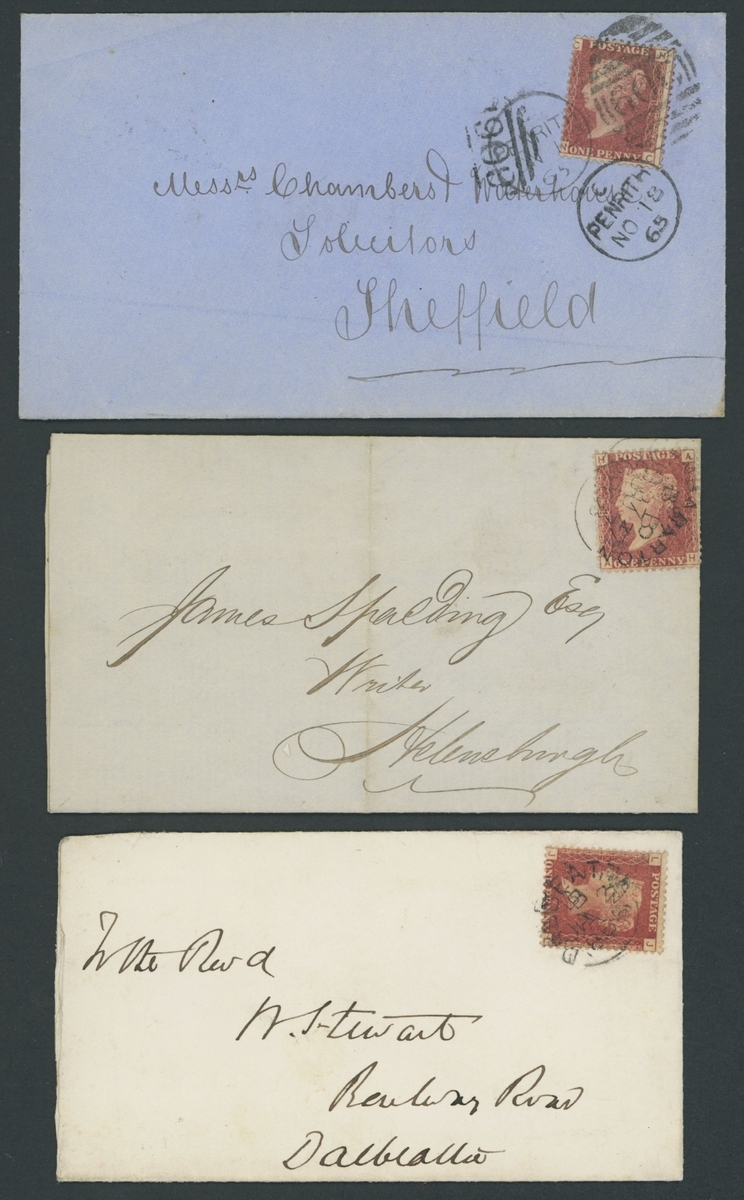 C M
POSTAGE
ONE PENNY
C
PENRITH
NO 18
65
Messrs Chambers & Waterhouse
Solicitors
Sheffield
H A
POSTAGE
ONE PENNY
A H
James Spalding Esq
Writer
Helensburgh
L
POSTAGE
J
To the Revd
W. Stewart
Dalbeattie